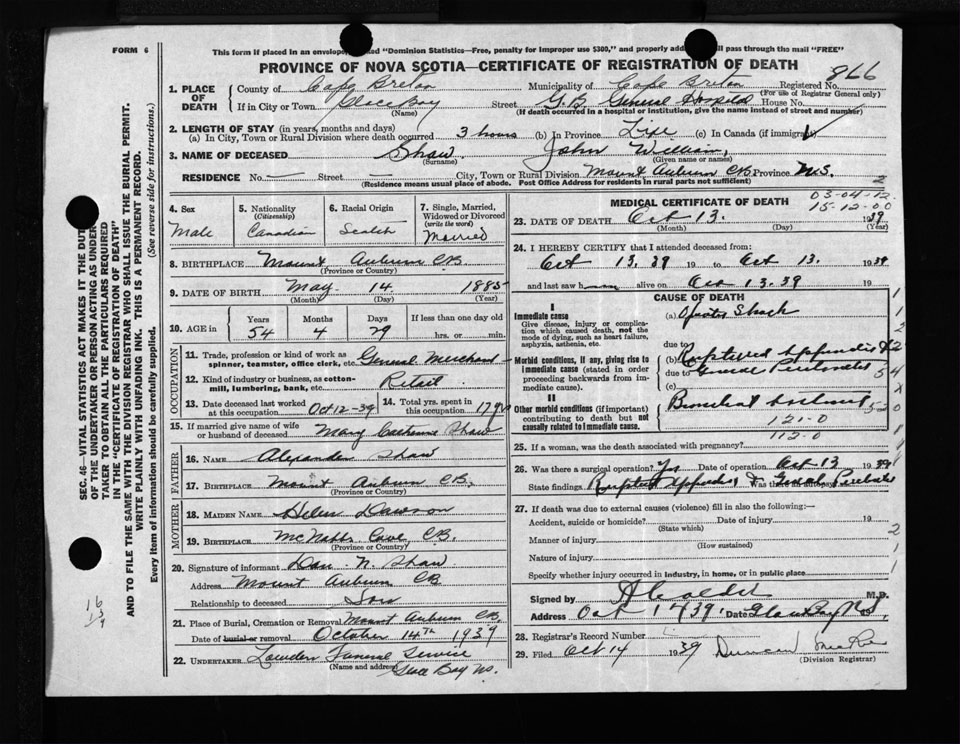 FORM 6
This form if placed in an envelope, marked "Dominion Statistics—Free, penalty for improper use $300," and properly addressed will pass through the mail "FREE"
PROVINCE OF NOVA SCOTIA—CERTIFICATE OF REGISTRATION OF DEATH
866
1. PLACE OF DEATH
County of Cape Breton Municipality of Cape Breton Registered No.
(For use of Registrar General only)
If in City or Town Glace Bay Street G.B. General Hospital House No.
(Name) (If death occurred in a hospital or institution, give the name instead of street and number)
2. LENGTH OF STAY (in years, months and days)
(a) In City, Town or Rural Division where death occurred 3 hours (b) In Province Life (c) In Canada (if immigrant)
3. NAME OF DECEASED Shaw John William
(Surname) (Given name or names)
RESIDENCE No. — Street — City, Town or Rural Division Mount Auburn CB Province N.S.
(Residence means usual place of abode. Post Office Address for residents in rural parts not sufficient)
4. Sex Male
5. Nationality (Citizenship) Canadian
6. Racial Origin Scotch
7. Single, Married, Widowed or Divorced (write the word) Married
8. BIRTHPLACE Mount Auburn CB.
(Province or Country)
9. DATE OF BIRTH May 14 1885
(Month) (Day) (Year)
10. AGE in Years Months Days If less than one day old
54 4 29 hrs. or min.
OCCUPATION
11. Trade, profession or kind of work as spinner, teamster, office clerk, etc. General Merchant
12. Kind of industry or business, as cotton-mill, lumbering, bank, etc. Retail
13. Date deceased last worked at this occupation Oct 12-39
14. Total yrs. spent in this occupation 17 yrs
15. If married give name of wife or husband of deceased Mary Shaw
FATHER
16. Name Alexander Shaw
17. Birthplace Mount Auburn CB.
(Province or Country)
MOTHER
18. Maiden Name Helen Dawson
19. Birthplace McNabbs Cove, CB.
(Province or Country)
20. Signature of informant Dan N. Shaw
Address Mount Auburn CB
Relationship to deceased Son
21. Place of Burial, Cremation or Removal Mount Auburn CB.
Date of burial or removal October 14th 1939
22. UNDERTAKER Funeral Service
(Name and address) Glace Bay NS.
MEDICAL CERTIFICATE OF DEATH
03-04-12
15-12-00
23. DATE OF DEATH Oct 13. 1939
(Month) (Day) (Year)
24. I HEREBY CERTIFY that I attended deceased from:
Oct 13, 39 19 to Oct 13. 1939
and last saw h alive on Oct 13. 39 19
CAUSE OF DEATH
I
Immediate cause
Give disease, injury or complication which caused death, not the mode of dying, such as heart failure, asphyxia, asthenia, etc.
(a) Shock
due to
Morbid conditions, if any, giving rise to immediate cause (stated in order proceeding backwards from immediate cause).
Ruptured Appendix
due to General Peritonitis
(c)
II
Other morbid conditions (if important) contributing to death but not causally related to immediate cause.
Bronchial Asthma
121-0
112-0
25. If a woman, was the death associated with pregnancy?
26. Was there a surgical operation? Yes Date of operation Oct 13 1939
State findings Ruptured Appendix Was there an autopsy?
27. If death was due to external causes (violence) fill in also the following:—
Accident, suicide or homicide? Date of injury 19
(State which)
Manner of injury
(How sustained)
Nature of injury
Specify whether injury occurred in industry, in home, or in public place
Signed by M.D.
Address Date Glace Bay N.S.
28. Registrar's Record Number
29. Filed Oct 14 1939 Duncan
(Division Registrar)
SEC. 46—VITAL STATISTICS ACT MAKES IT THE DUTY
OF THE UNDERTAKER OR PERSON ACTING AS UNDERTAKER TO OBTAIN ALL THE PARTICULARS REQUIRED
IN THE "CERTIFICATE OF REGISTRATION OF DEATH"
AND TO FILE THE SAME WITH THE DIVISION REGISTRAR WHO SHALL ISSUE THE BURIAL PERMIT.
WRITE PLAINLY WITH UNFADING INK. THIS IS A PERMANENT RECORD.
Every item of information should be carefully supplied. (See reverse side for instructions.)